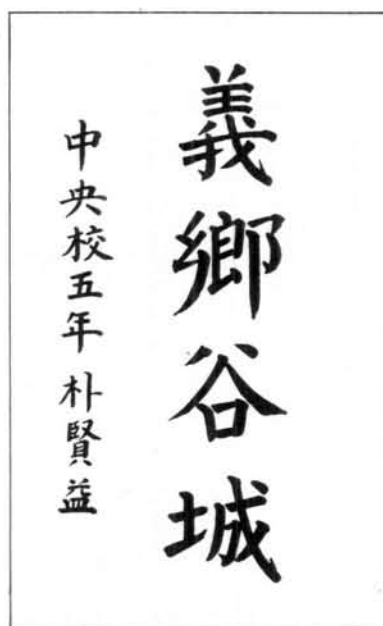 義鄉谷城
中央校五年 朴賢益